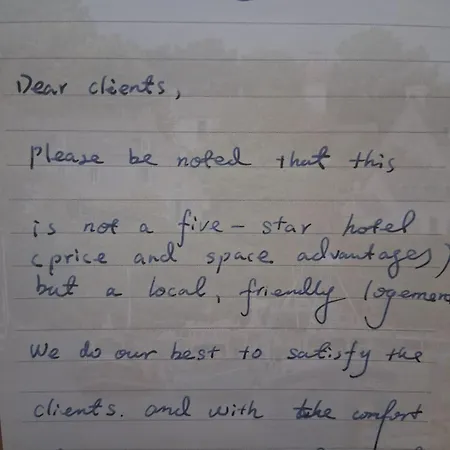 Dear clients,
please be noted that this
is not a five-star hotel
(price and space advantages)
but a local, friendly logemen
We do our best to satisfy the
clients. and with the comfort